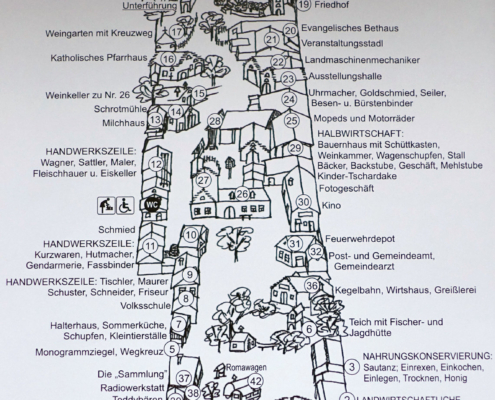 Unterführung
19 Friedhof
Weingarten mit Kreuzweg 17
20 Evangelisches Bethaus
21 Veranstaltungsstadl
Katholisches Pfarrhaus 16
22 Landmaschinenmechaniker
23 Ausstellungshalle
Weinkeller zu Nr. 26 15
24 Uhrmacher, Goldschmied, Seiler,
Besen- u. Bürstenbinder
Schrotmühle 14
Milchhaus 13
28
25 Mopeds und Motorräder
HANDWERKSZEILE: 12
Wagner, Sattler, Maler,
Fleischhauer u. Eiskeller
29 HALBWIRTSCHAFT:
Bauernhaus mit Schüttkasten,
Weinkammer, Wagenschupfen, Stall
Bäcker, Backstube, Geschäft, Mehlstube
Kinder-Tschardake
27
26
Fotogeschäft
WC
30 Kino
Schmied
10
HANDWERKSZEILE: 11
Kurzwaren, Hutmacher,
Gendarmerie, Fassbinder
31 Feuerwehrdepot
32 Post- und Gemeindeamt,
Gemeindearzt
HANDWERKSZEILE: Tischler, Maurer 9
Schuster, Schneider, Friseur
36 Kegelbahn, Wirtshaus, Greißlerei
Volksschule 8
Halterhaus, Sommerküche, 7
Schupfen, Kleintierställe
6 Teich mit Fischer- und
Jagdhütte
Monogrammziegel, Wegkreuz 5
3 NAHRUNGSKONSERVIERUNG:
Sautanz; Einrexen, Einkochen,
Einlegen, Trocknen, Honig
Romawagen
42
Die „Sammlung" 37
Radiowerkstatt 38
Teddybären
2 LANDWIRTSCHAFTLICHE